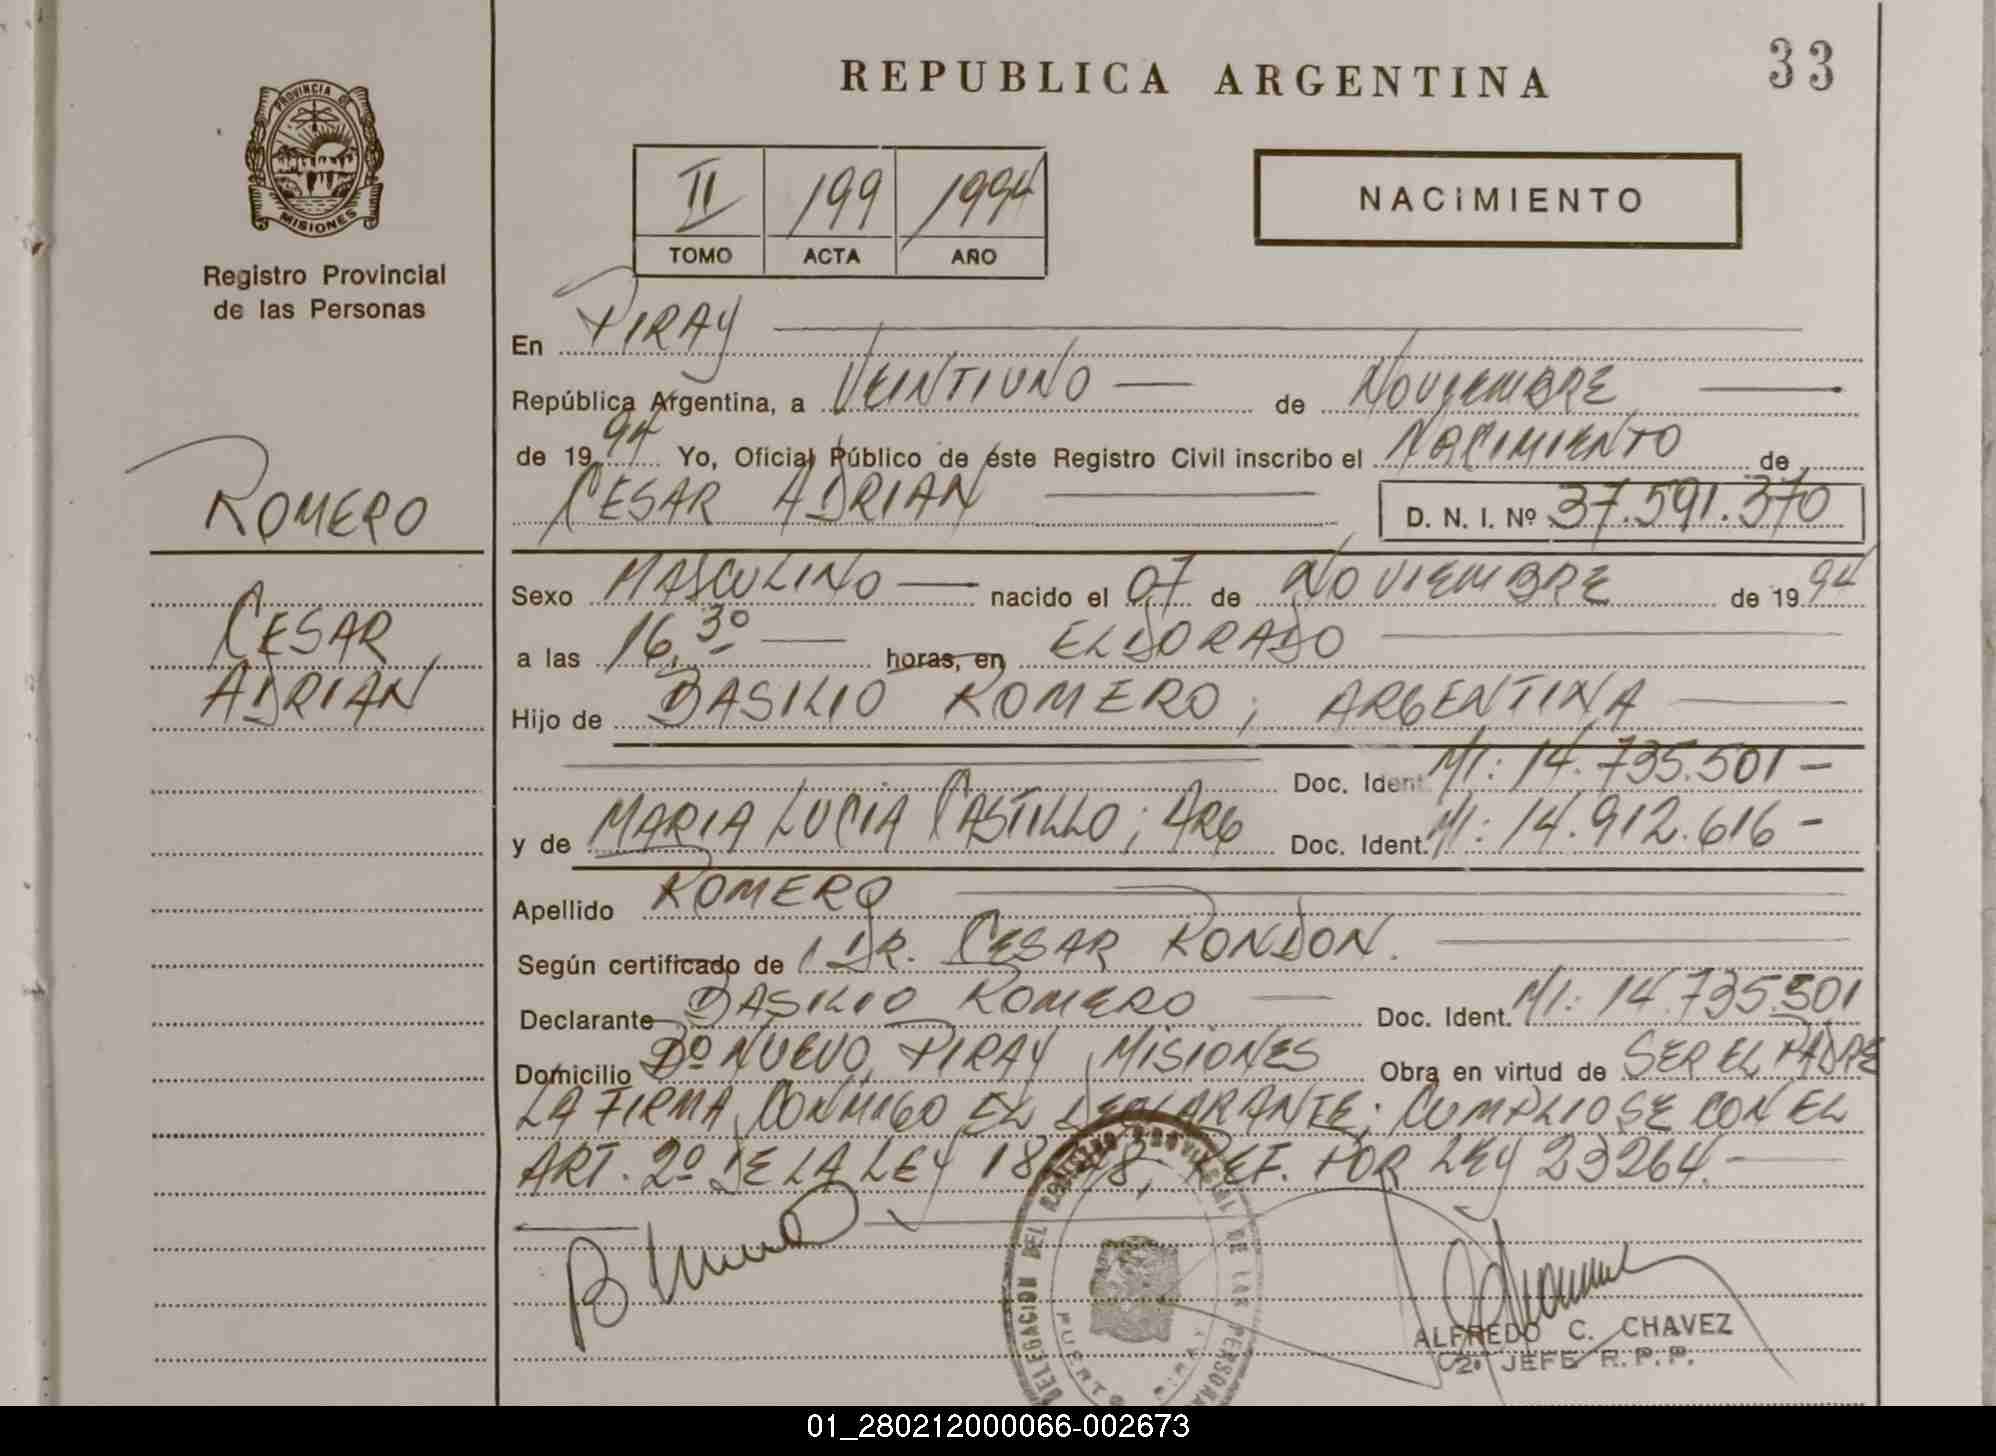 REPUBLICA ARGENTINA
33
PROVINCIA DE
MISIONES
Registro Provincial
de las Personas
II 199 1994
TOMO ACTA AÑO
NACIMIENTO
En PIRAY
República Argentina, a VEINTIUNO de NOVIEMBRE
de 19 94 Yo, Oficial Público de éste Registro Civil inscribo el NACIMIENTO de
CESAR ADRIAN D. N. I. Nº 37.591.370
ROMERO
CESAR
ADRIAN
Sexo MASCULINO nacido el 07 de NOVIEMBRE de 19 94
a las 16,30 horas, en ELDORADO
Hijo de BASILIO ROMERO; ARGENTINA
Doc. Ident. MI: 14.735.501 -
y de MARIA LUCIA CASTILLO; ARG Doc. Ident. MI: 14.912.616 -
Apellido ROMERO
Según certificado de DR. CESAR RONDON.
Declarante BASILIO ROMERO Doc. Ident. MI: 14.735.501
Domicilio Bº NUEVO, PIRAY, MISIONES Obra en virtud de SER EL PADRE
LA FIRMA CONMIGO EL DECLARANTE; CUMPLIOSE CON EL
ART. 2º DE LA LEY REF. POR LEY 23264.
DELEGACION DEL REGISTRO PROVINCIAL DE LAS PERSONAS
PUERTO PIRAY
ALFREDO C. CHAVEZ
2º JEFE R.P.P.
01_280212000066-002673